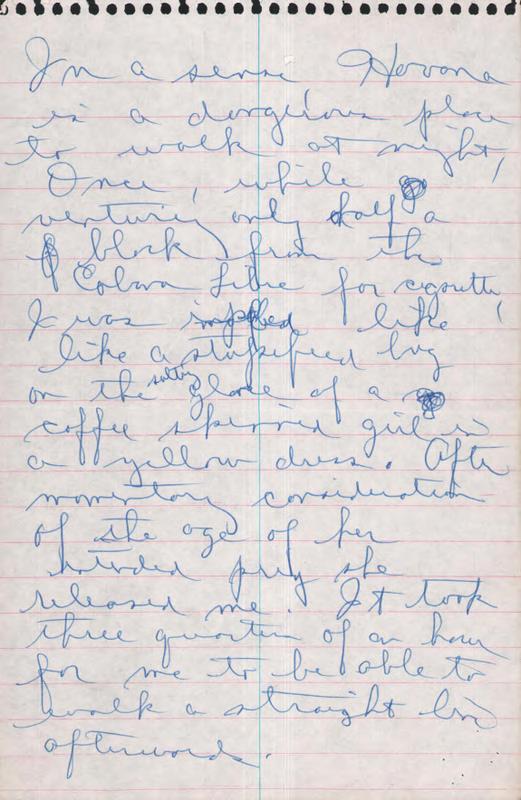 In a sense Havana
is a dangerous place
to walk at night,
Once, while
venturing only half a
block from the
Cobana Libre for cigarette,
I was impaled like
like a stupified bug
on the sultry glare of a
coffee skinned girl in
a yellow dress. After
momentary consideration
of the age of her
intended prey she
released me. It took
three quarters of an hour
for me to be able to
walk a straight line
afterwards.